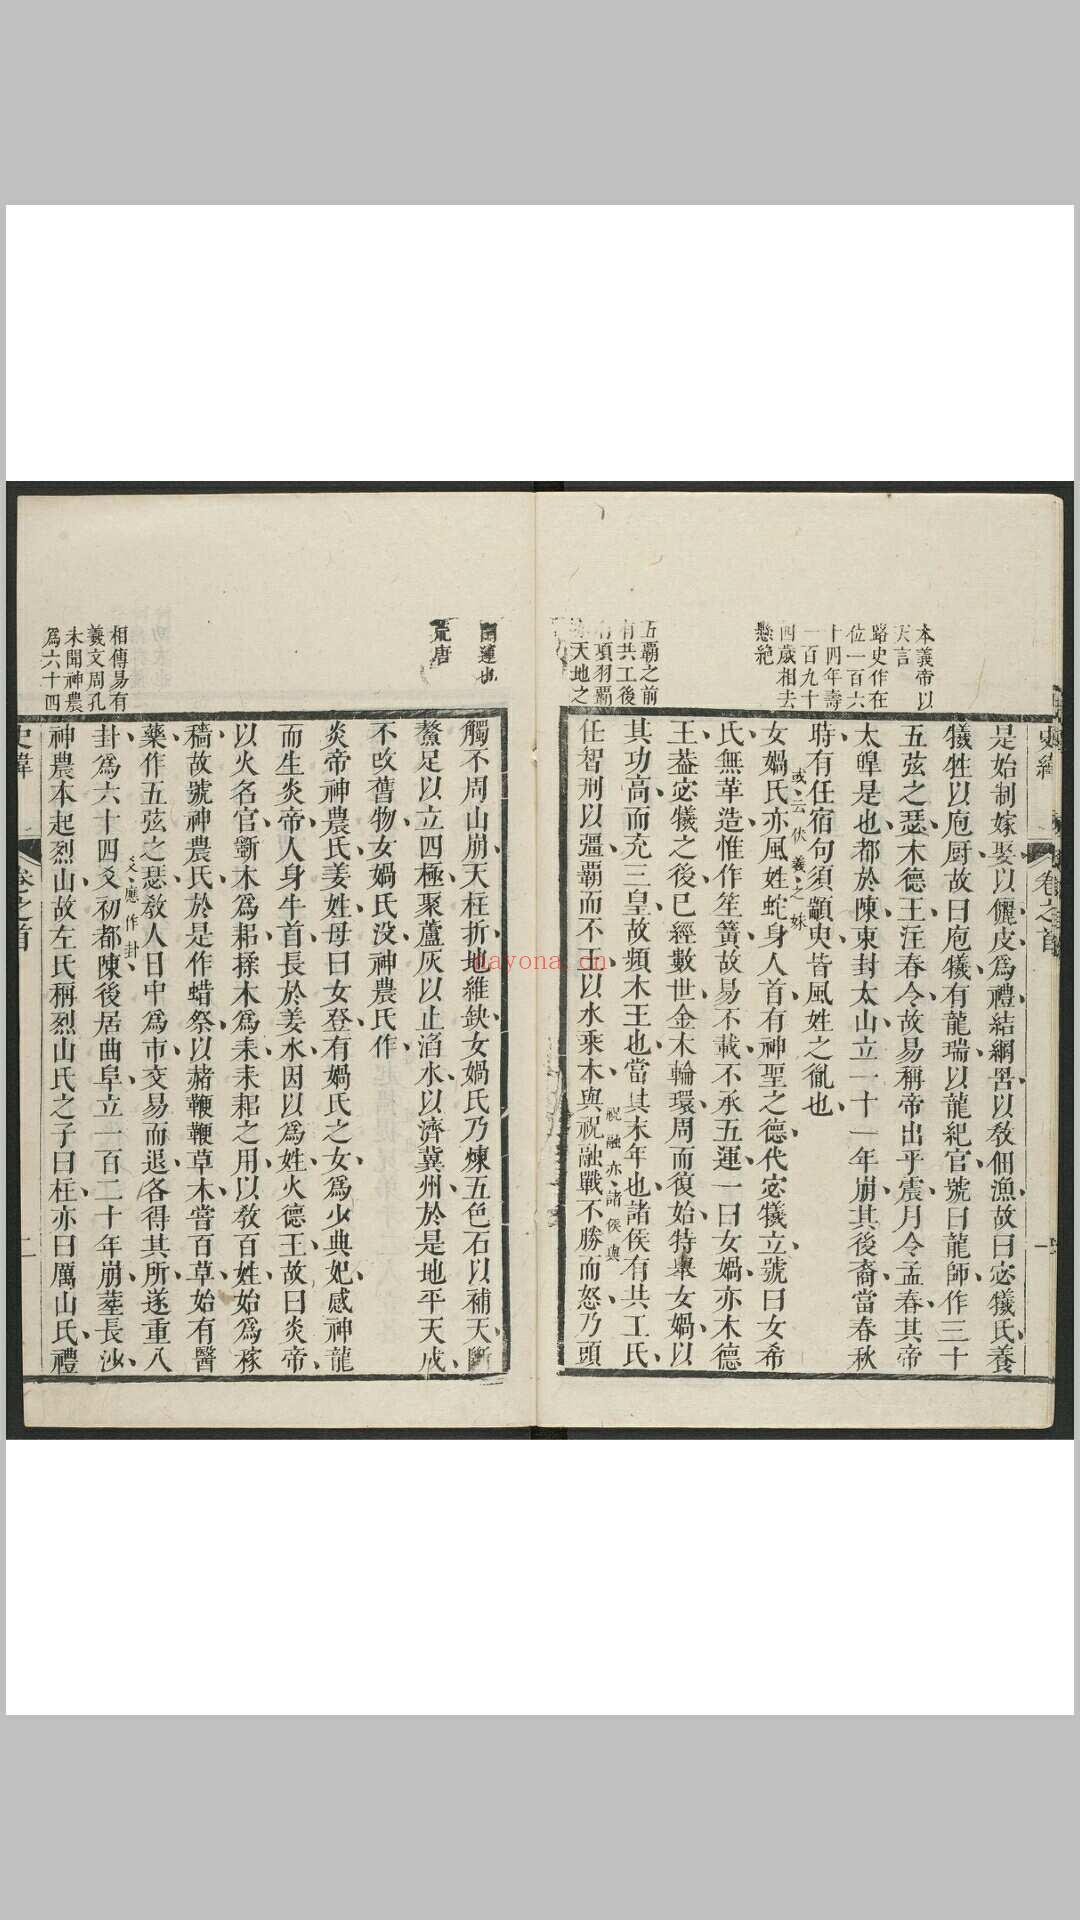 本義帝以
天言
路史作在
位一百六
十四年壽
一百九十
四歲相去
懸絶
五霸之前
有共工後
有項羽霸
天地之
史緯
卷之首
一
是始制嫁娶以儷皮爲禮結網罟以敎佃漁故曰宓犧氏養
犧牲以庖厨故曰庖犧有龍瑞以龍紀官號曰龍師作三十
五弦之瑟木德王注春令故易稱帝出乎震月令孟春其帝
太皥是也都於陳東封太山立一十一年崩其後裔當春秋
時有任宿句須顓臾皆風姓之胤也
或云伏羲之妹
女媧氏亦風姓蛇身人首有神聖之德代宓犧立號曰女希
氏無革造惟作笙簧故易不載不承五運一曰女媧亦木德
王葢宓犧之後已經數世金木輪環周而復始特舉女媧以
其功高而充三皇故頻木王也當其末年也諸侯有共工氏
祝融亦諸侯與
任智刑以彊霸而不王以水乘木與祝融戰不勝而怒乃頭
蓮也
荒唐
相傳易有
羲文周孔
未聞神農
爲六十四
觸不周山崩天柱折地維缺女媧氏乃煉五色石以補天斷
鰲足以立四極聚蘆灰以止滔水以濟冀州於是地平天成
不改舊物女媧氏沒神農氏作
炎帝神農氏姜姓母曰女登有媧氏之女爲少典妃感神龍
而生炎帝人身牛首長於姜水因以爲姓火德王故曰炎帝
以火名官斵木爲耜揉木爲耒耒耜之用以敎百姓始爲稼
穡故號神農氏於是作蜡祭以赭鞭鞭草木嘗百草始有醫
藥作五弦之瑟敎人日中爲市交易而退各得其所遂重八
爻應作卦
卦爲六十四爻初都陳後居曲阜立一百二十年崩葬長沙
神農本起烈山故左氏稱烈山氏之子曰柱亦曰厲山氏禮
史緯
卷之首
二
nayona.cn